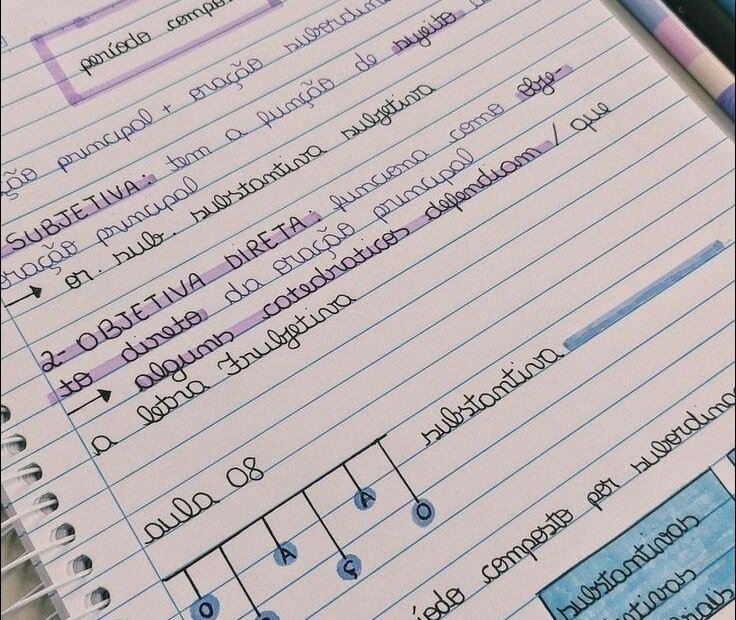 período compo
ção principal + oração subordin
SUBJETIVA: tem a função de sujeito d
oração principal
→ or. sub. substantiva subjetiva
2- OBJETIVA DIRETA funciona como obje-
to direto da oração principal
→ alguns catedraticos defendiam / que
a letra
aula 08
substantiva
O A Ç A O
íodo composto por subordina
substantivas
etivas